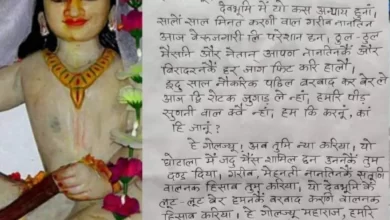 देवभूमि में यो कस अन्याय हुनौ,
सालों साल मिनत करणी वाल गरीब नानतिन
आज बेरूजगारी लि परेशान छन, ठुल-ठुल
भैंसनि और नेतान आपण नानतिनकें और
बिरादरनकें हर जाग फिट करि हालौ,
इदु साल नौकरिक पछिल बरबाद कर बेर ले
आज द्वि रोटक जुगाड़ ले न्हां, हमरि पीड़
सुणनी वाल क्वे न्हां, हम कि करनूं, कां
हि जानूं?
हे गोलज्यू, अब तुमि न्या करिया, यो
घोटाला में जदु भैंस शामिल छन उननकें तुम
दण्ड दिया। गरीब, मेहनती नानतिनकें सतूणी
वालनक हिसाब तुम करिया, यो देवभूमि कें
लूट-लूट बेर हमनकें बरबाद करणी वालनक
हिसाब करिया। हे गोलज्यू महाराज, हमरि